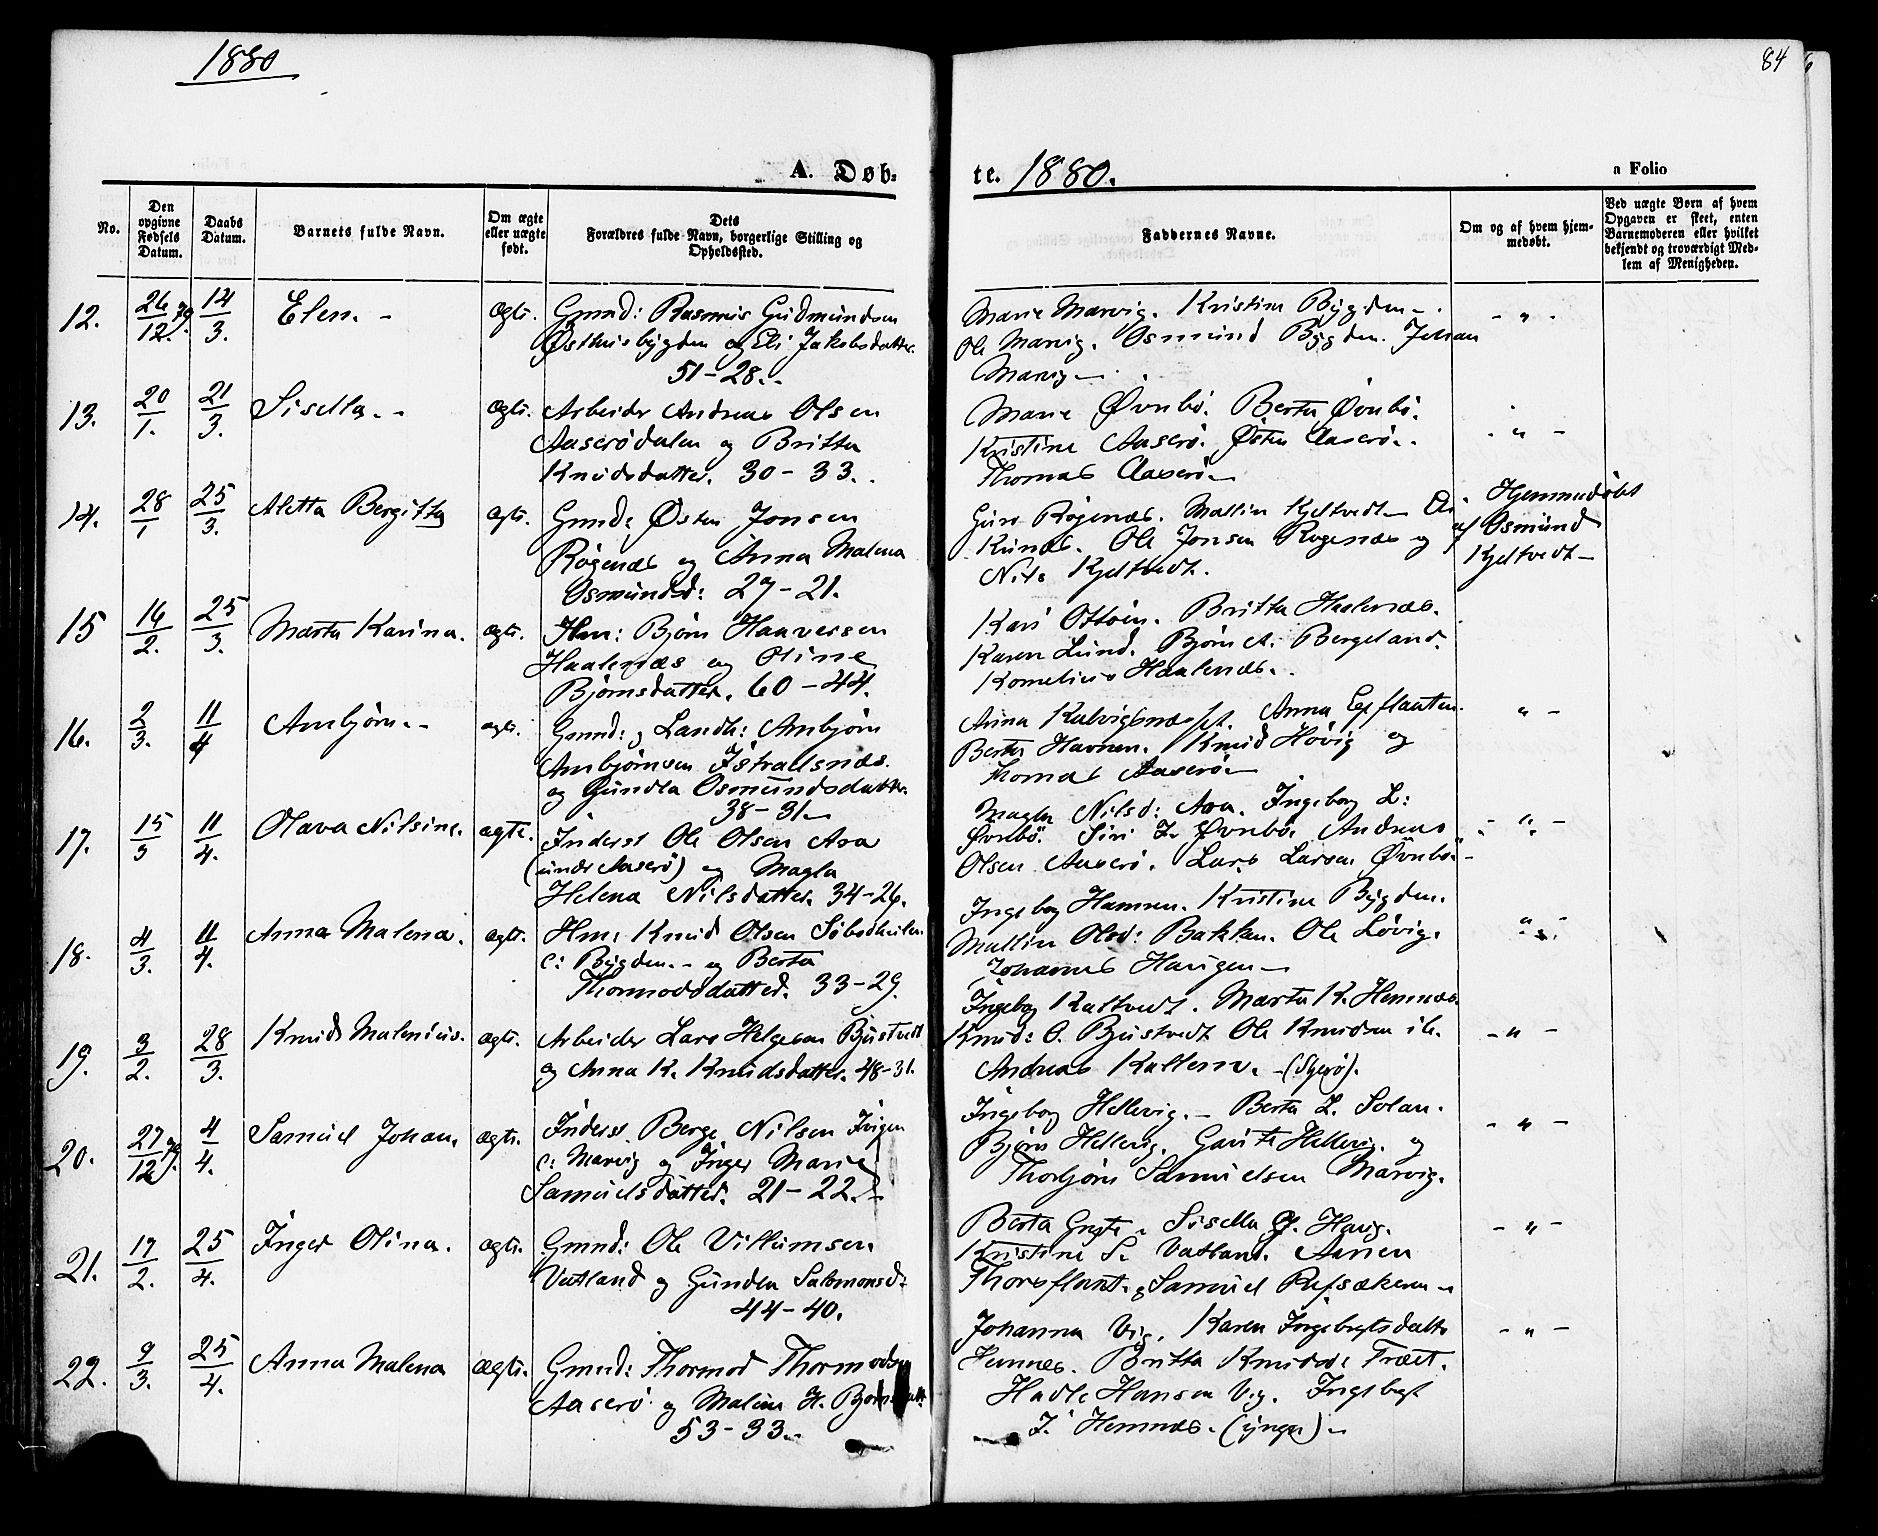 1880
84
A. Døb-
te. 1880.
a Folio
No.
Den opgivne Fødsels Datum.
Daabs Datum.
Barnets fulde Navn.
Om ægte eller uægte født.
Dets Forældres fulde Navn, borgerlige Stilling og Opholdssted.
Faddernes Navne.
Om og af hvem hjemmedøbt.
Ved uægte Børn af hvem Opgaven er skeet, enten Barnemoderen eller hvilket bekjendt og troværdigt Medlem af Menigheden.
12. 26/12. 79. 14/3. Elen. - Ægte. Gmnd: Rasmus Gudmundsen
Østhusbygden og Eli Jakobsdatter.
51-28.
Marie Marvig. Kristine Bygden -
Ole Marvig. Osmund Bygden. Johan
Marvig - - " -
13. 20/1. 21/3. Sisella. - Ægte. Arbeider Andreas Olsen
Aaserødalen og Britta
Knudsdatter. 30-33.
Marie Øvnbø. Berta Øvnbø.
Kristine Aaserø. Østen Aaserø.
Thomas Aaserø - " -
14. 28/1 25/3. Aletta Bergitta Ægte. Gmnd: Østen Jonsen
Røgenæs og Anna Malena
Osmundsd: 27-21.
Guro Røgenæs. Mallin Kjeltvedt
Ole Jonsen Rogenæs og
Nils Kjeltvedt.
Hjemmedøbt
af Osmund
Kjeltvedt -
15 16/2. 25/3. Marta Karina. Ægte. Hm: Bjørn Haaversen
Haalenæs og Oline
Bjørnsdatter. 60-44.
Kari Ottøen. Britta Haalenæs.
Karen Lund. Bjørn A. Bergeland.
Kornelius Haalenæs.
16. 2/3. 11/4 Ambjørn. - ægte. Gmnd: og Landh: Ambjørn
Ambjørnsen Istralsnæs.
og Gundla Osmundsdatter.
38-31.
Anna
Berta Havnen. Knud Høvig og
Thomas Aaserø - " -
17. 15/3 11/4. Olava Nilsine. ægte. Inderst Ole Olsen Ara
(under Aaserø) og Magla
Helena Nilsdatter. 34-26.
Magla Nilsd: Ara. Ingeborg L:
Øvnbø. Siri L. Øvnbø. Andreas
Olsen Aaserø. Lars Larsen Øvnbø - " -
18. 4/3. 11/4. Anna Malena. ægte. Hm: Knud Olsen
c: Bygden. - og Berta
Thormodsdatter. 33-29.
Ingeborg Hamnen. Kristine Bygden.
Mallin Olsd: Bakken. Ole Løvig.
Johannes Haugen - " -
19. 3/2. 28/3. Knud Malenius. ægte. Arbeider Lars Helgesen Bjustvedt
og Anna K. Knudsdatter. 48-31.
Ingeborg Kaltvedt. Marta K. Hemnæs.
Knud: O. Bjustvedt Ole Knudsen ib.
Andreas - " -
20. 27/12 79. 4/4. Samuel Johan. ægte. Inderst Berge Nilsen
c: Marvig og Inger Marie
Samuelsdatter. 21-22.
Ingeborg Hellevig. - Berta L. Solan.
Bjørn Hellevig. Hellevig. og
Thorbjørn Samuelsen Marvig. - " -
21. 17/2. 25/4. Inger Olina. ægte. Gmnd: Ole Villumsen
Vatland og Gunden Salomonsd.
44-40.
Berta Sisella Havig.
Kristine S. Vatland.
Samuel Refsækeren - - " -
22. 9/3. 25/4. Anna Malena Ægte. Gmnd: Thormod Thormodsen
Aaserø og Malene H.
53-33.
Johanna Vig. Karen Ingebrigtsdatter
Hemnæs. Britta Knudsd: Træet.
Hadle Hansen Vig. Ingebregt
J. Hemnæs. (yngre) - - " -